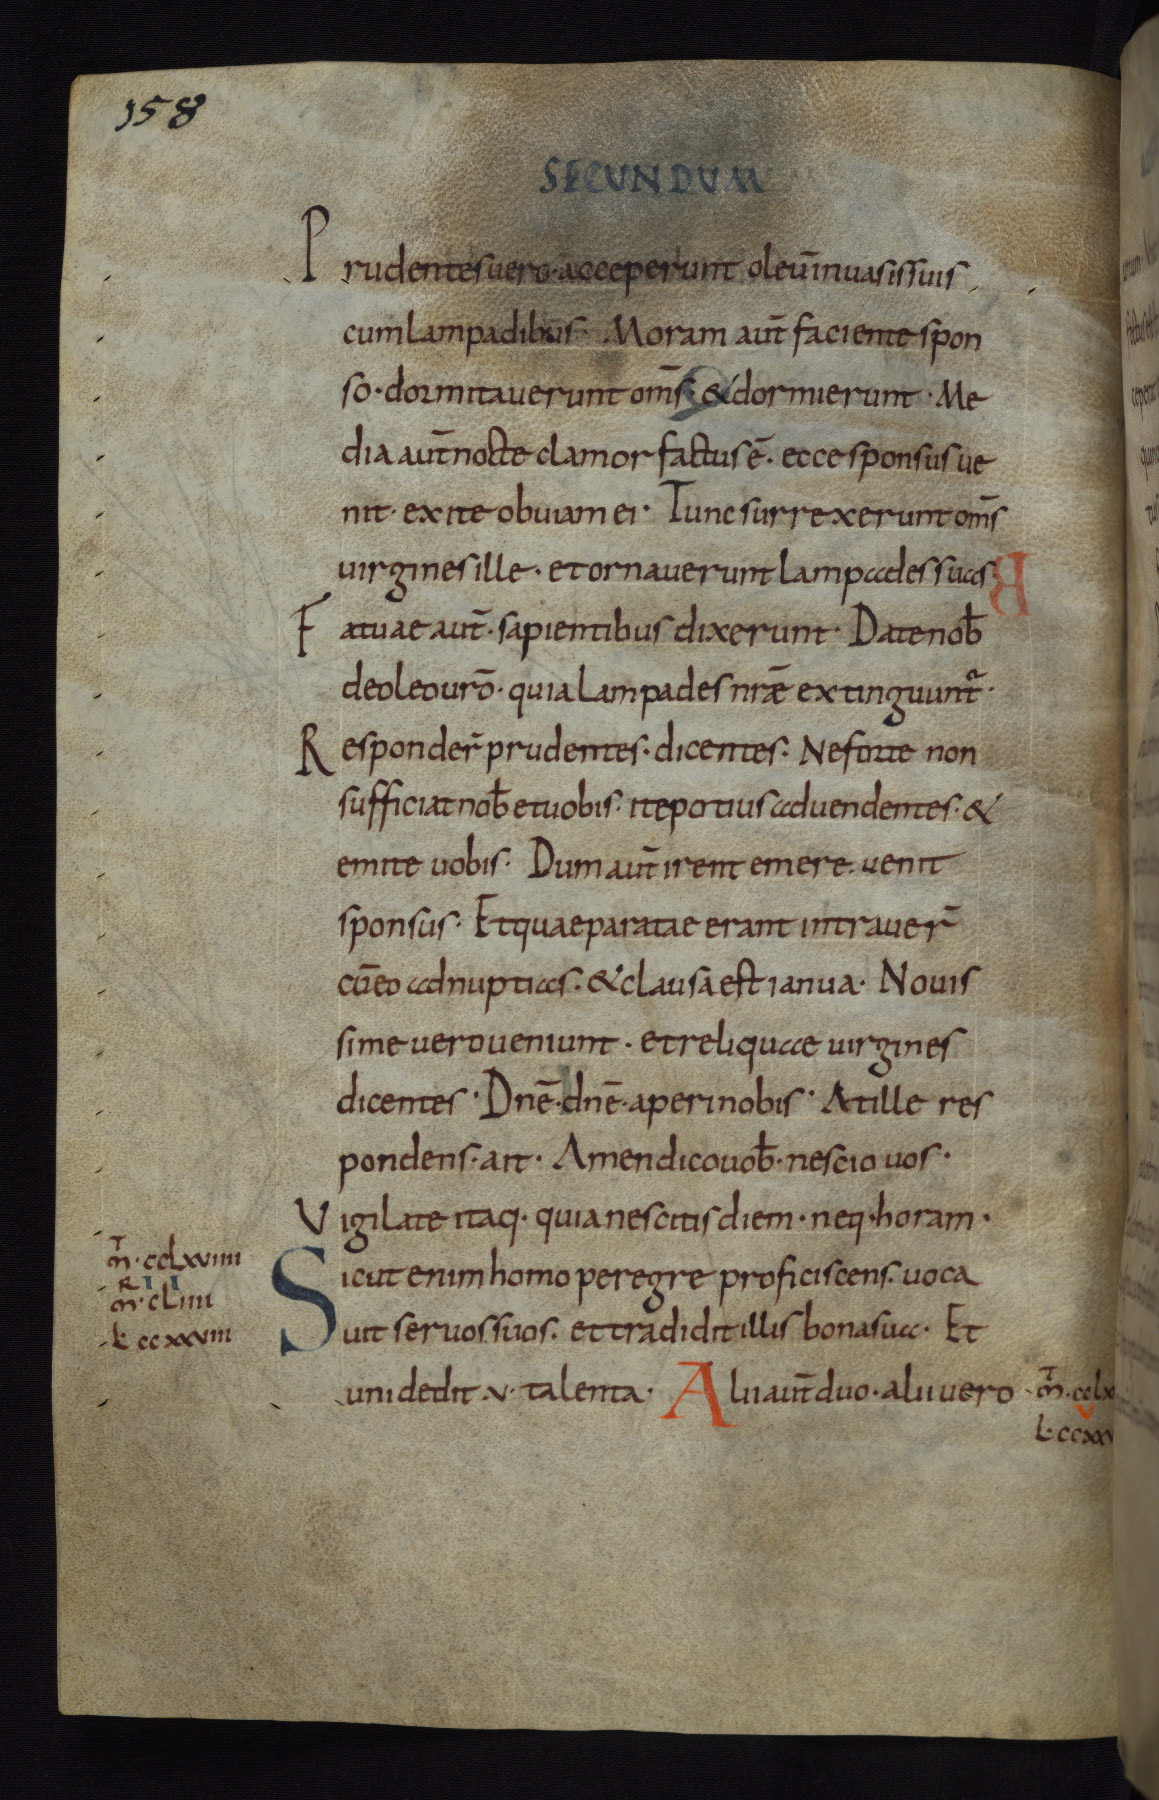 158
SECUNDUM
Prudentes vero · acceperunt oleū in vasis suis
cum lampadibus · Moram aut̄ faciente spon
so · dormitaverunt om̄s · & dormierunt · Me
dia aut̄ nocte clamor factus ē · ecce sponsus ve
nit · exite obviam ei · Tunc surrexerunt om̄s
virgines ille · et ornaverunt lampades suas ·
Fatuae aut̄ · sapientibus dixerunt · Date nob̄
de oleo vr̄o · quia lampades nr̄ae extinguunt̄ ·
Responder̄ prudentes · dicentes · Ne forte non
sufficiat nob̄ et vobis · ite potius ad vendentes · &
emite vobis · Dum aut̄ irent emere · venit
sponsus · Et quae paratae erant intraver̄
cū eo ad nuptias · & clausa est ianua · Novis
sime vero veniunt · et reliquae virgines
dicentes · Dn̄e · dn̄e · aperi nobis · At ille res
pondens · ait · Amen dico vob̄ · nescio vos ·
Vigilate itaq · quia nescitis diem · neq · horam ·
m̄ · cclxviiii
R II
m · cliiii
L ccxxviii
Sicut enim homo peregre proficiscens · voca
vit servos suos · et tradidit illis bona sua · Et
uni dedit · v · talenta · Alii aut̄ duo · alii vero
m̄ · cclx
L · ccxx